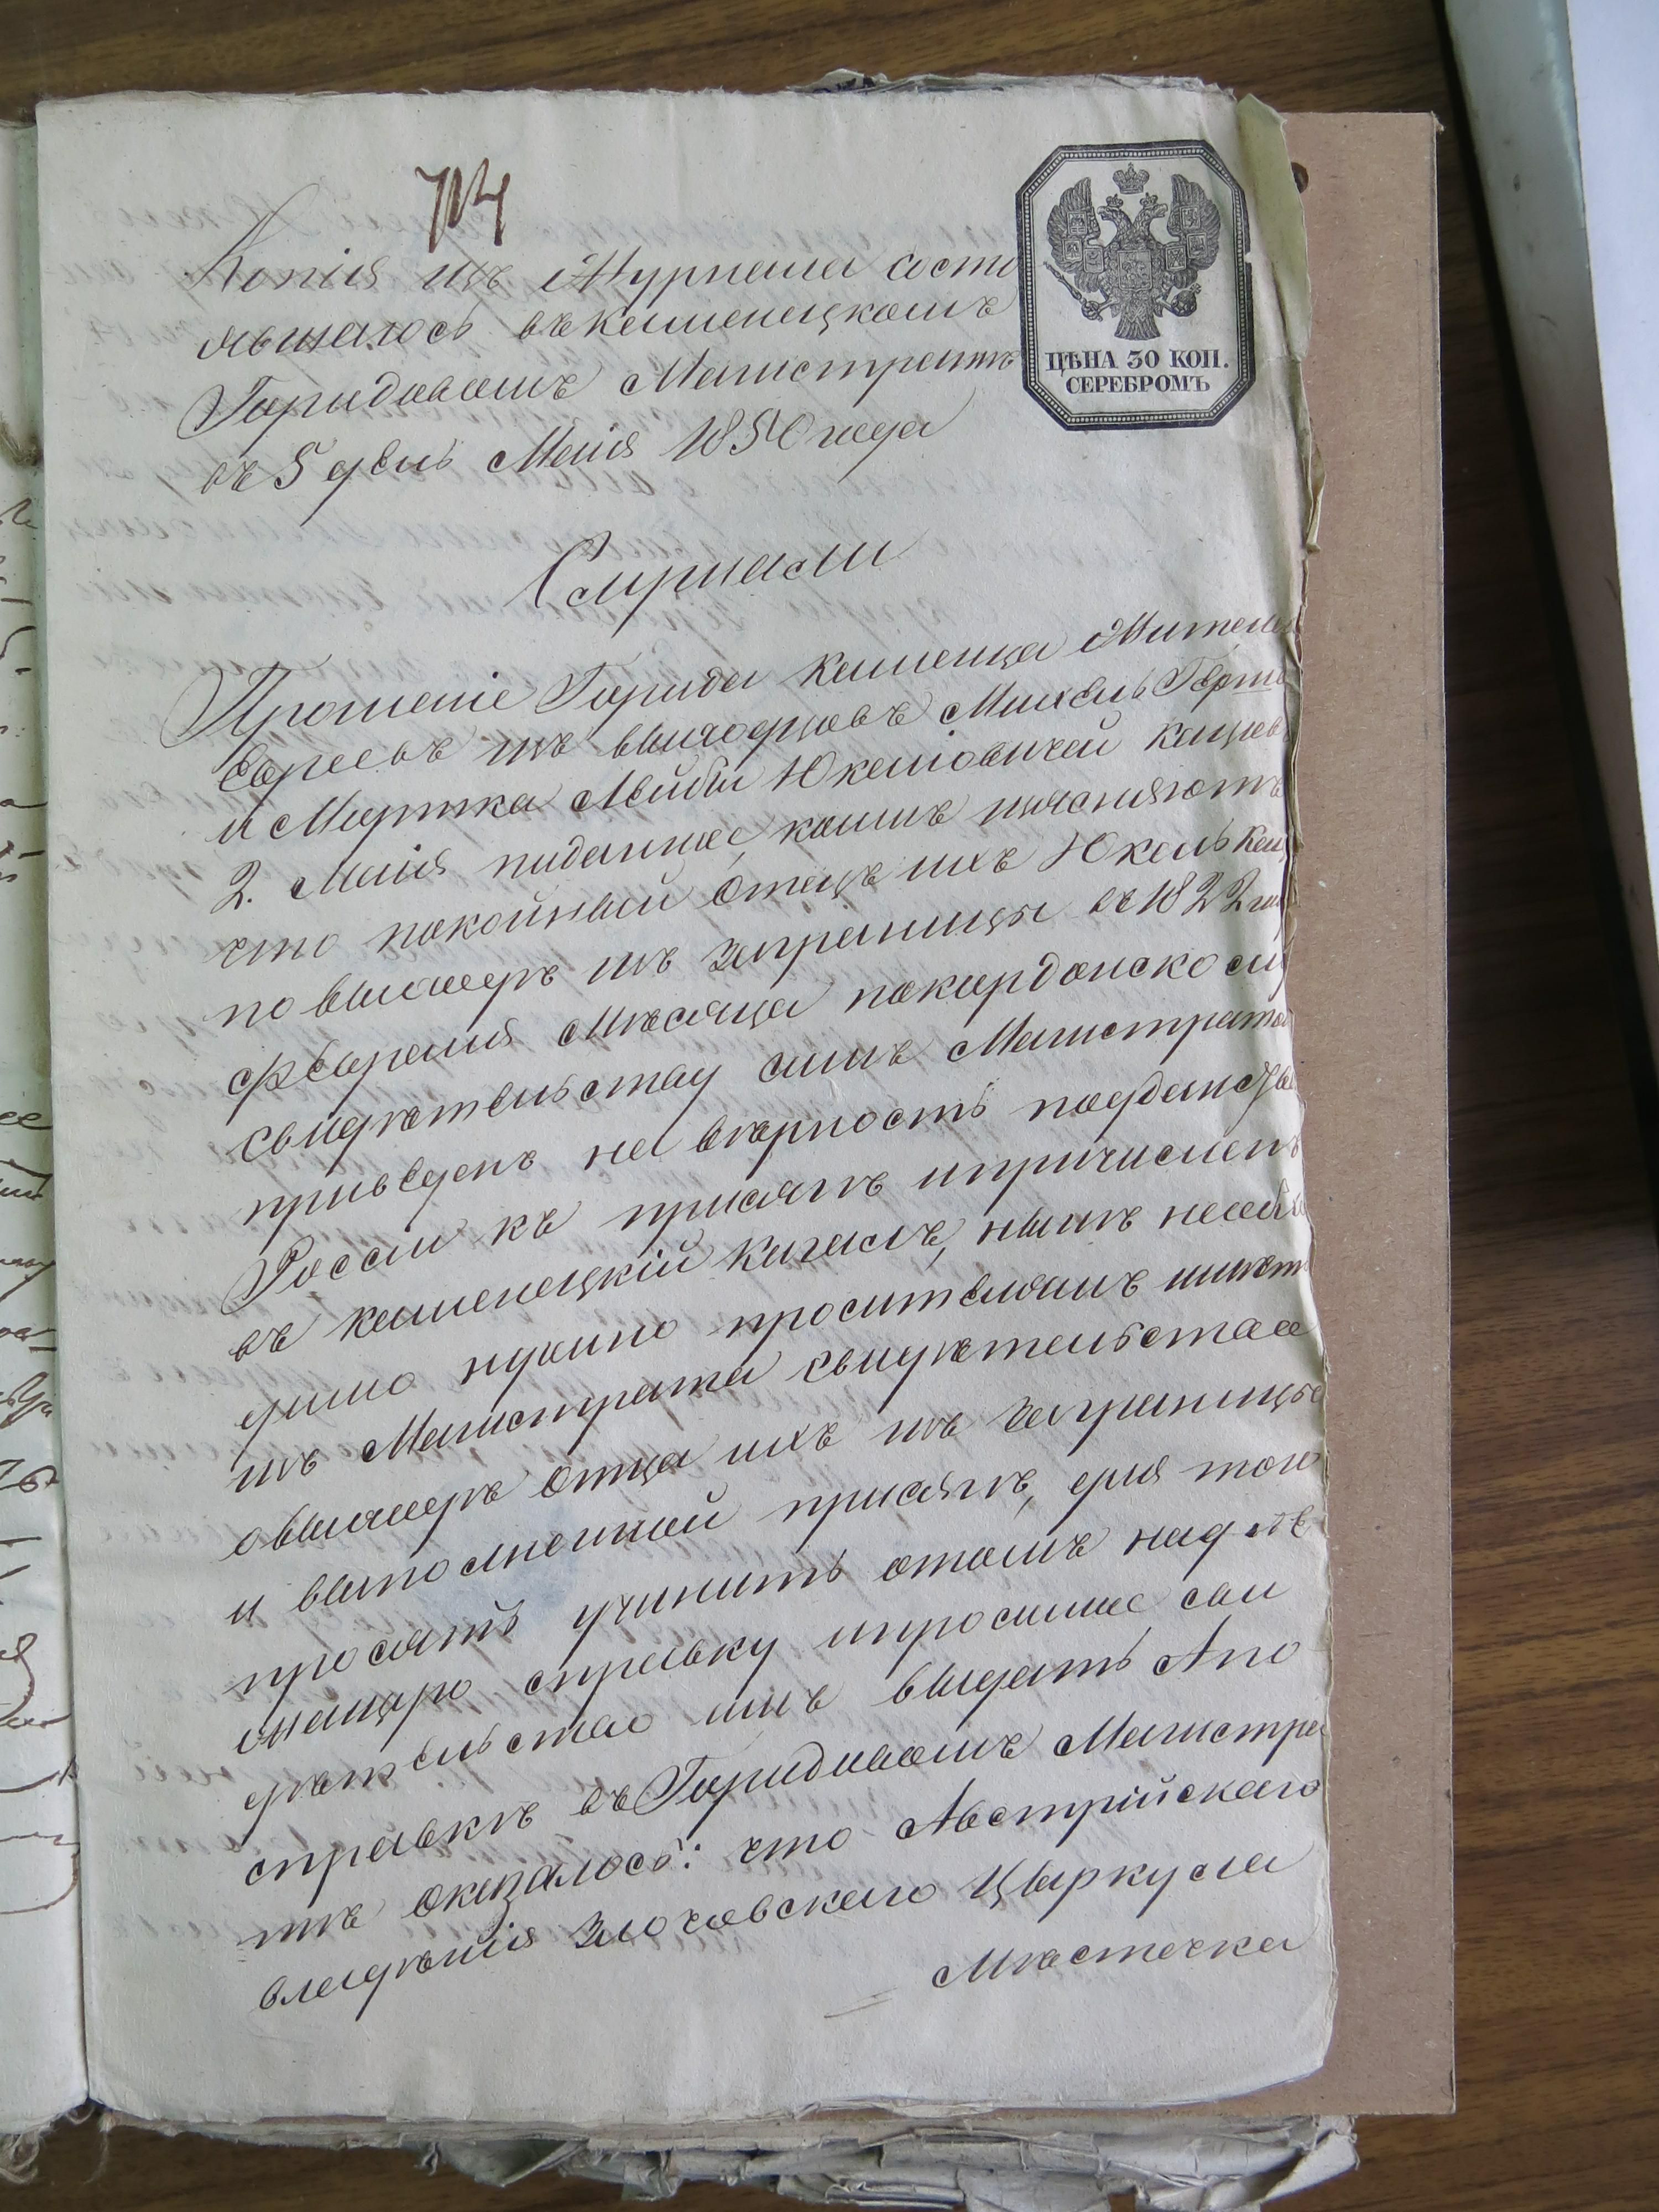 714
Копія изъ Журнала состо
явшагось въ Каменецкомъ
Городовомъ Магистратѣ
въ 5 день Маія 1850 года
ЦѢНА 30 КОП.
СЕРЕБРОМЪ
Слушали
Прошеніе Города Каменца Жителей
Евреевъ изъ выходцовъ Михель Герш
и Мортка Лейбы Юкелiовичей Кацов
2. Маія поданное, коимъ изъясняютъ
что покойный отецъ ихъ Юкель Кац
по выходѣ изъ заграницы въ 1822 го
февраля мѣсяца по кордонскому
свидѣтельству симъ Магистратомъ
приведенъ на вѣрность подданства
Россіи къ присягѣ и причисленъ
въ Каменецкій Кагалъ, нынѣ необхо
димо нужно просителямъ имѣть
изъ Магистрата свидѣтельства
о выходѣ отца ихъ изъ заграницы
и выполненной присягѣ, для того
просятъ учинить о томъ надлѣ
жащую справку и просимое сви
дѣтельство имъ выдать А по
справкѣ въ Городовомъ Магистра
тѣ оказалось: что Австрійскаго
владѣнія Злочовскаго Цыркула
Мѣстечка